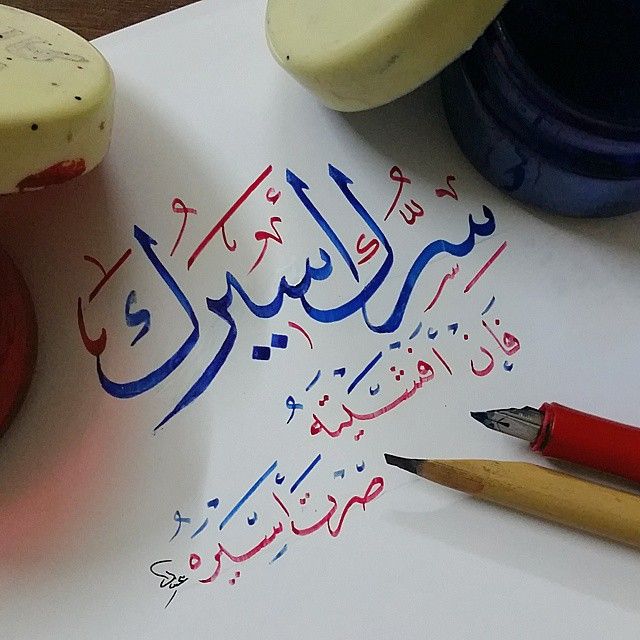 سِرُّكَ أسيرُكَ
فَإنْ أفْشَيْتَهُ
صِرْتَ أَسِيْرَهُ